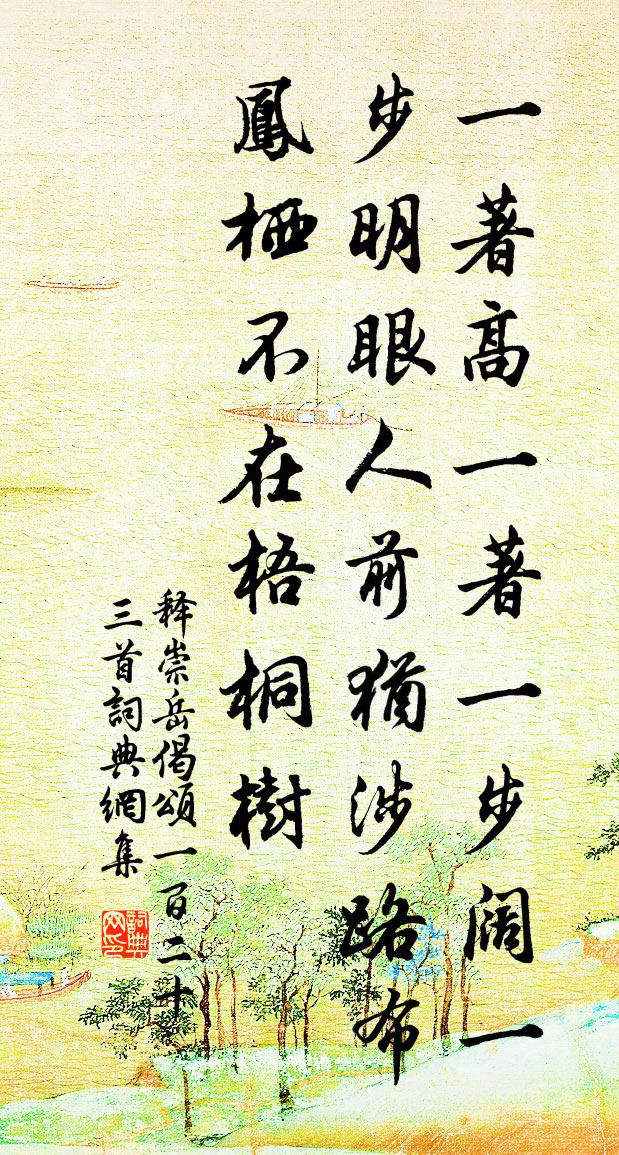 一著高一著一步闊一
步明眼人前猶涉路布
鳳栖不在梧桐樹
释崇岳偈頌一百二十
三首詞典網集
詞典
网印